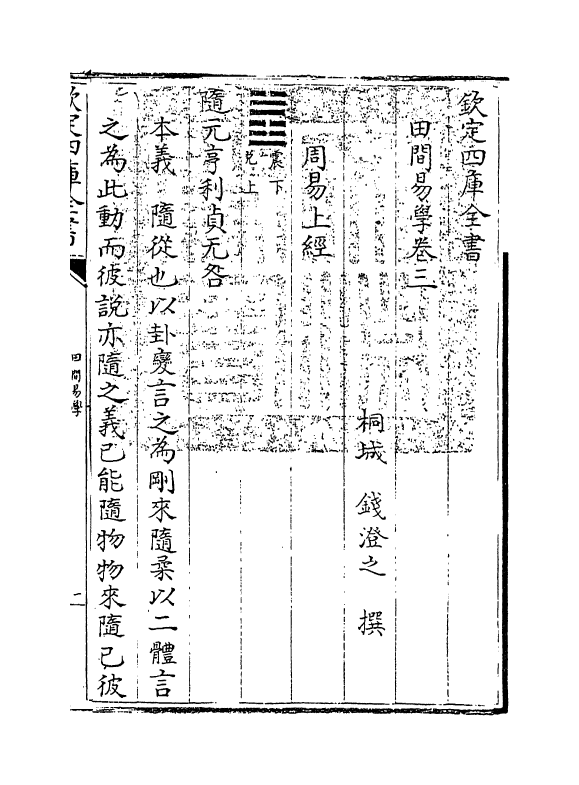 欽定四庫全書
田間易學卷三
桐城 錢澄之 撰
周易上經
震下
兌上
隨元亨利貞无咎
本義 隨從也以卦變言之為剛來隨柔以二體言
之為此動而彼說亦隨之義已能隨物物來隨已彼
欽定四庫全書
田間易學